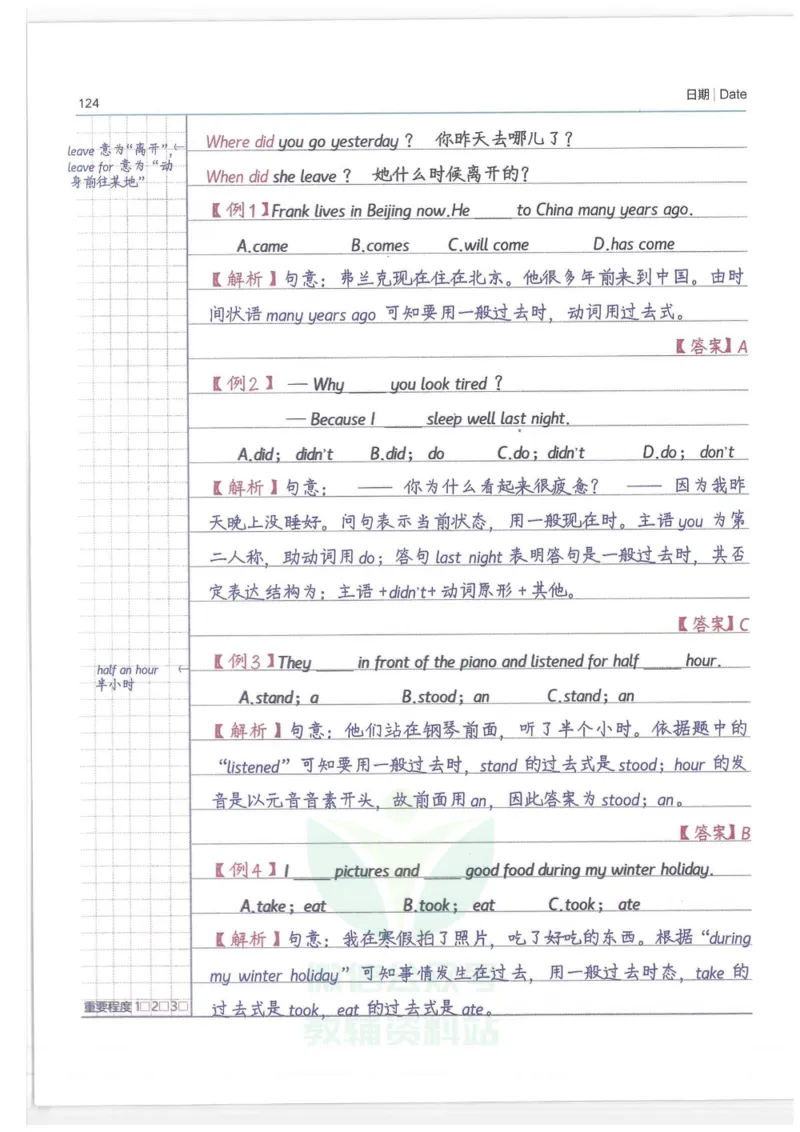 124
日期 | Date
leave 意为“离开”,
leave for 意为“动
身前往某地”
Where did you go yesterday？ 你昨天去哪儿了？
When did she leave？ 她什么时候离开的？
【例1】Frank lives in Beijing now.He ____ to China many years ago.
A.came B.comes C.will come D.has come
【解析】句意：弗兰克现在住在北京。他很多年前来到中国。由时
间状语 many years ago 可知要用一般过去时，动词用过去式。
【答案】A
【例2】 — Why ____ you look tired？
— Because I ____ sleep well last night.
A.did； didn't B.did； do C.do；didn't D.do； don't
【解析】句意： —— 你为什么看起来很疲惫？ —— 因为我昨
天晚上没睡好。问句表示当前状态，用一般现在时。主语 you 为第
二人称，助动词用 do；答句 last night 表明答句是一般过去时，其否
定表达结构为：主语 +didn't+ 动词原形 + 其他。
【答案】C
half an hour
半小时
【例3】They ____ in front of the piano and listened for half ____ hour.
A.stand；a B.stood；an C.stand；an
【解析】句意：他们站在钢琴前面，听了半个小时。依据题中的
“listened” 可知要用一般过去时，stand 的过去式是 stood；hour 的发
音是以元音音素开头，故前面用 an，因此答案为 stood；an。
【答案】B
【例4】I ____ pictures and ____ good food during my winter holiday.
A.take；eat B.took； eat C.took； ate
【解析】句意：我在寒假拍了照片，吃了好吃的东西。根据 “during
my winter holiday” 可知事情发生在过去，用一般过去时态，take 的
过去式是 took，eat 的过去式是 ate。
重要程度 1□2□3□
微信公众号
教辅资料站